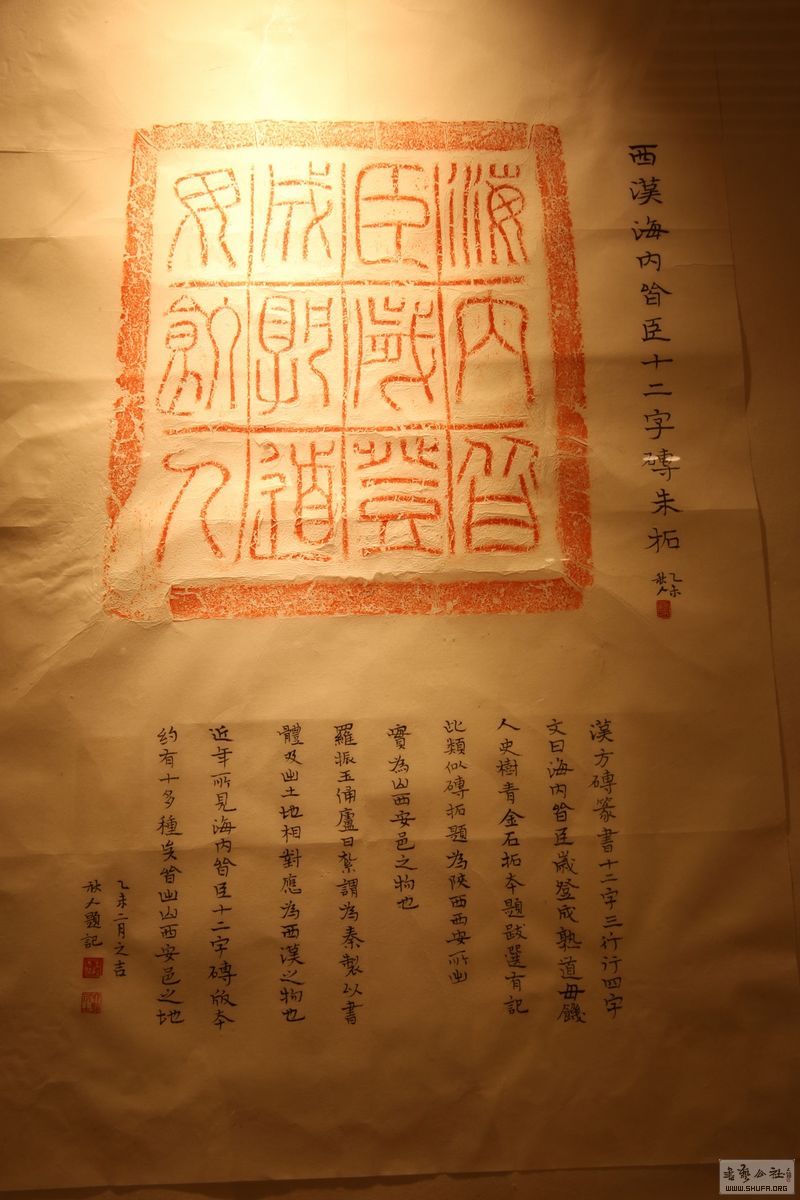 西漢海内皆臣十二字磚朱拓
乙未
秋人
海内皆
臣歲登
成孰道
毋飢人
漢方磚篆書十二字三行行四字
文曰海内皆臣歲登成熟道毋饑
人史樹青金石拓本題跋選有記
此類似磚拓題為陝西西安所出
實為山西安邑之物也
羅振玉俑廬日紮謂為秦製以書
體及出土地相對應為西漢之物也
近年所見海内皆臣十二字磚版本
約有十多種矣皆出山西安邑之地
乙未二月之吉
秋人題記
書藝公社
WWW.SHUFA.ORG